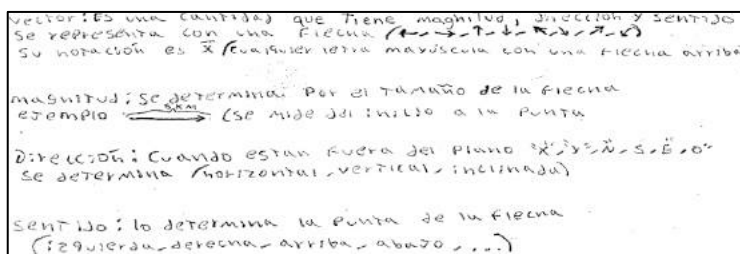 vector: Es una cantidad que tiene magnitud, dirección y sentido
se representa con una flecha (←, →, ↑, ↓, ↖, ↘, ↗, ↙)
su notación es x⃗ (cualquier letra mayúscula con una flecha arriba
magnitud: se determina por el tamaño de la flecha
ejemplo 5 KM (se mide del inicio a la punta
Dirección: Cuando estan fuera del plano "X", "Y", N, S, E, O"
se determina (horizontal, vertical, inclinada)
sentido: lo determina la punta de la flecha
(izquierda, derecha, arriba, abajo, ...)